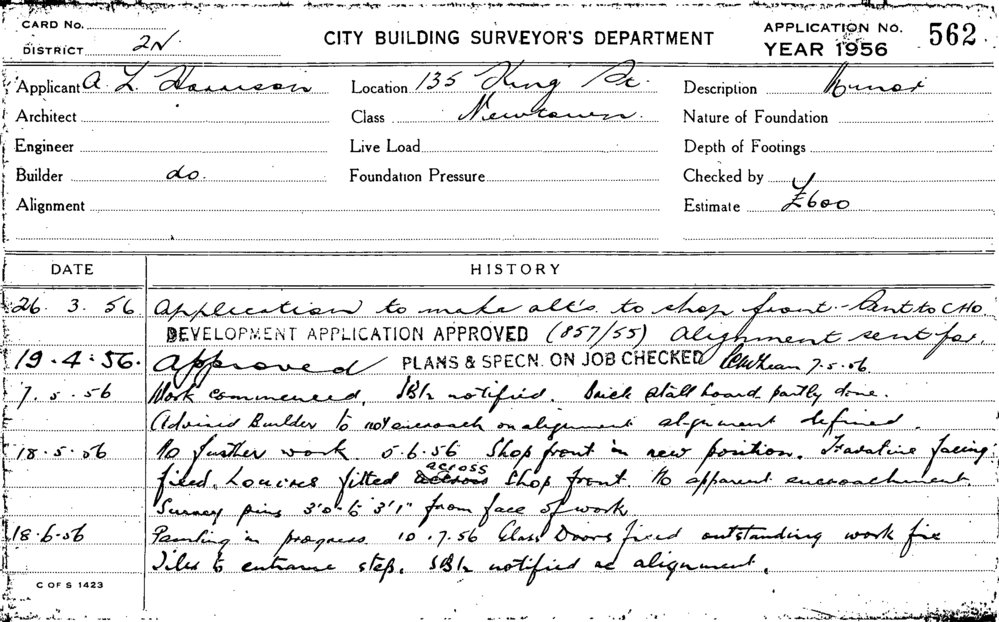 CARD No.
DISTRICT 2N
CITY BUILDING SURVEYOR'S DEPARTMENT
APPLICATION No. 562
YEAR 1956
Applicant A. L. Harrison Location 135 King St. Description Minor
Architect Class Newtown. Nature of Foundation
Engineer Live Load Depth of Footings
Builder do. Foundation Pressure Checked by
Alignment Estimate £600
DATE HISTORY
26. 3. 56 Application to make alt's to shop front - Sent to CHO
DEVELOPMENT APPLICATION APPROVED (857/55) Alignment sent for.
19.4.56. Approved PLANS & SPECN. ON JOB CHECKED 7.5.56.
7.5.56 Work commenced. notified. Brick stall board partly done.
Advised Builder to not encroach on alignment alignment defined.
18.5.56 No further work. 5.6.56 Shop front in new position. Travatine facing
fixed. Louvres fitted across shop front. No apparent encroachment
Survey pins 3'0" to 3'1" from face of work
18.6.56 Painting in progress. 10.7.56 Glass Doors fixed outstanding work fix
Tiles to entrance step. notified re alignment.
C OF S 1423